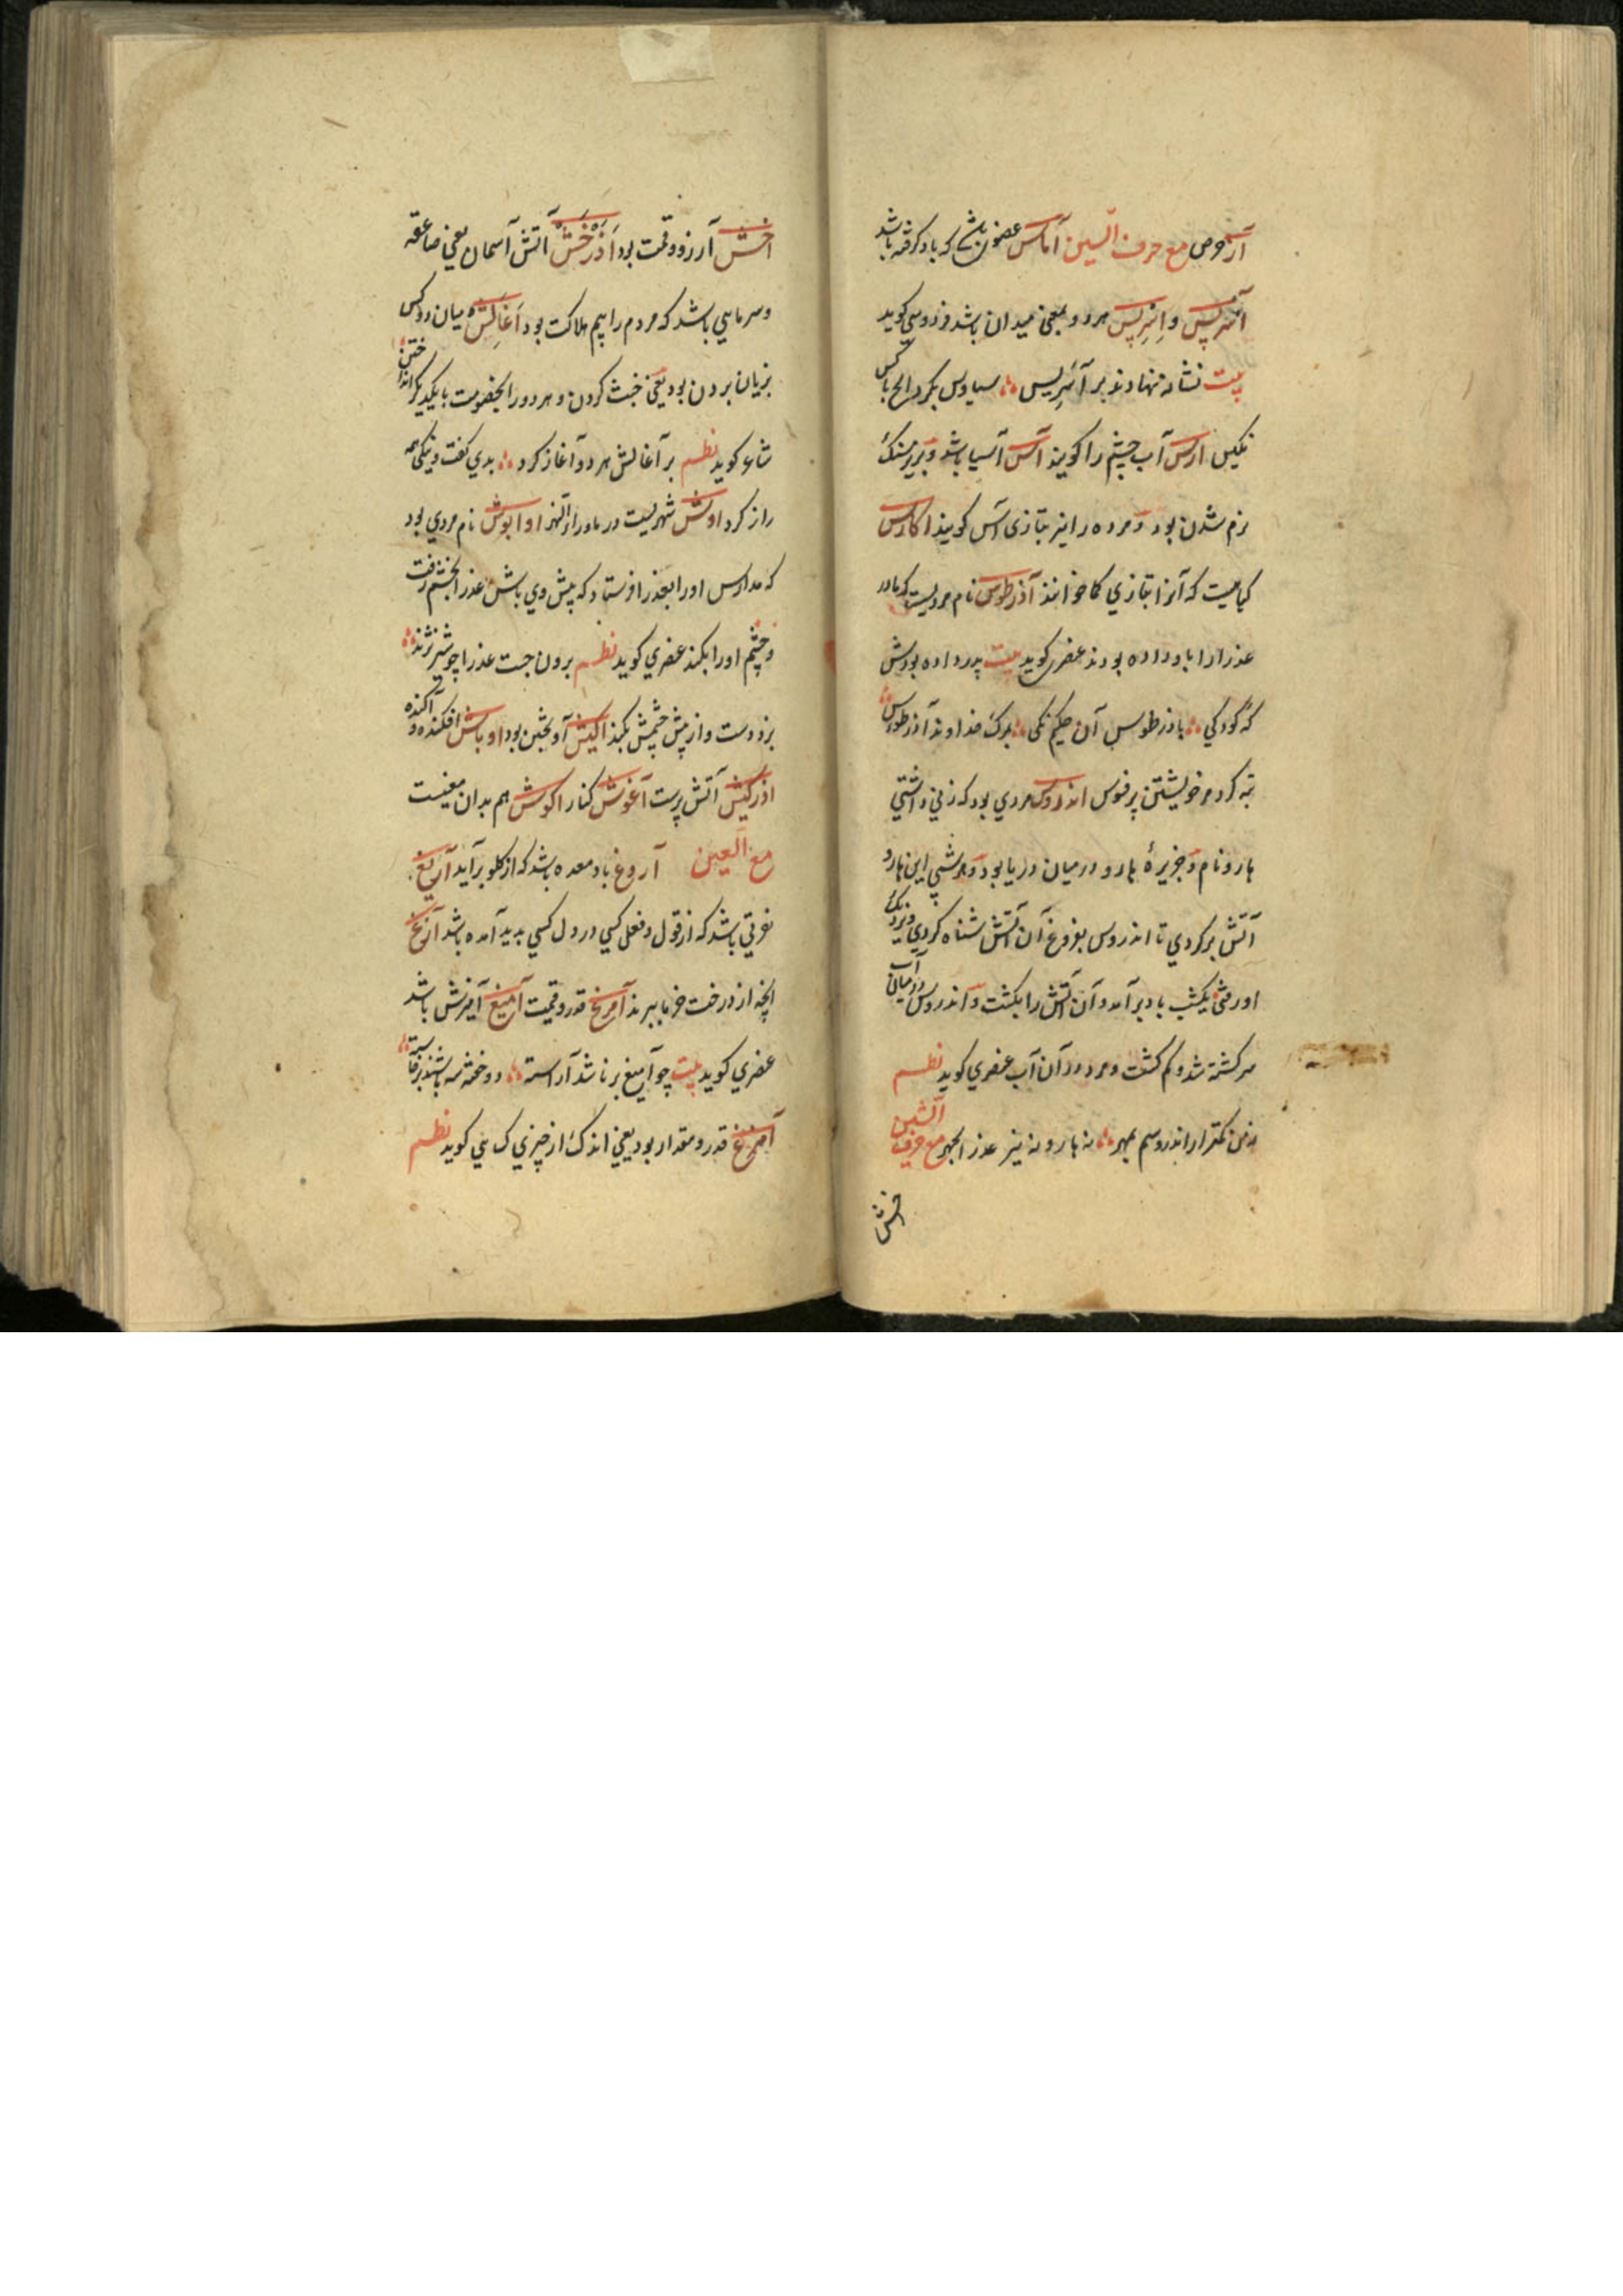 آز حرص مع حرف السین آماس عضوی باشد که باد گرفته باشد
آسپریس و اسپریس هر دو بمعنی میدان باشد فردوسی کوید
بیت نشانه نهادند بر آسپریس سیاوش نکرد ایچ با کس
مکیس ارس آب چشم را کویند آس آسیا باشد و بزیر سنک
نرم شدن بود و مرده را نیز بتازی آس کویند اکارس
کیاهیست که آنرا بتازی کما خوانند آذرطوس نام مردیست که مادر
عذرا را باو داده بودند عنصری کوید بیت پدر داده بودش
که کودکی باذرطوس آن حکیم نکی بمرک خداوند آذرطوس
تبه کرد مر خویشتن بر فسوس اندروس مردی بود که زنی داشتی
هارو نام و جزیرهٔ هارو در میان دریا بود و هر شبی این هارو
آتش برکردی تا اندروس بفروغ آن آتش شناه کردی و نزدیک
او رفتی یکشب باد برآمد و آن آتش را بکشت و اندروس در میان آب
سرکشته شد و کم کشت و مرد در آن آب عنصری کوید نظم
نه من کمتر از اندروسم بمهر نه هارو نه نیز عذرا بچهر مع حرف الشین
خش
اخش آرزو و قیمت بود آذرخش آتش آسمان یعنی صاعقه
و سرمایی باشد که مردم را بیم هلاکت بود آغالش میان دو کس
بزیان بردن بود یعنی خبث کردن و هر دو را بخصومت با یکدیکر انداختن
شاعر کوید نظم بر آغالش هر دو آغاز کرد بدی کفت و نیکی همه
راز کرد اوش شهریست در ماوراءالنهر اوابوش نام مردی بود
که مدارس او را بعذرا فرستاد که پیش وی باش عذرا بخشم رفت
و چشم او را بکند عنصری کوید نظم برون جست عذرا چو شیر نژند
بزد دست و از پیش چشمش بکند اکیش آویختن بود اوباش افکنده و آکنده
آذرکیش آتش پرست آغوش کنار اکوش هم بدان معنیست
مع الغین آروغ باد معده باشد که از کلو برآید آریغ
نفرتی باشد که از قول و فعل کسی در دل کسی پدید آمده باشد آزغ
انچه از درخت خرما ببرند آمرغ قدر و قیمت آمیغ آمیزش باشد
عنصری کوید بیت چو آمیغ برنا شد آراسته دو خفته سه باشند برخاسته
آمرغ قدر و مقدار بود یعنی اندک از چیزی کسائی کوید نظم